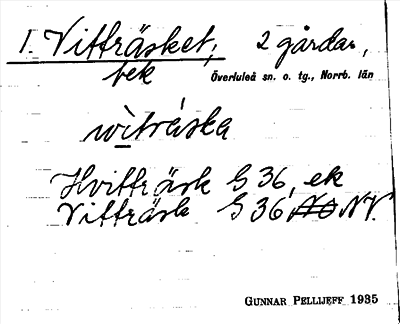 1. Vitträsket, 2 gårdar,
bek Överluleå sn. o. tg., Norrb. län
witräska
Hvitträsk G 36, ek
Vitträsk G 36 NO NV.
GUNNAR PELLIJEFF 1935